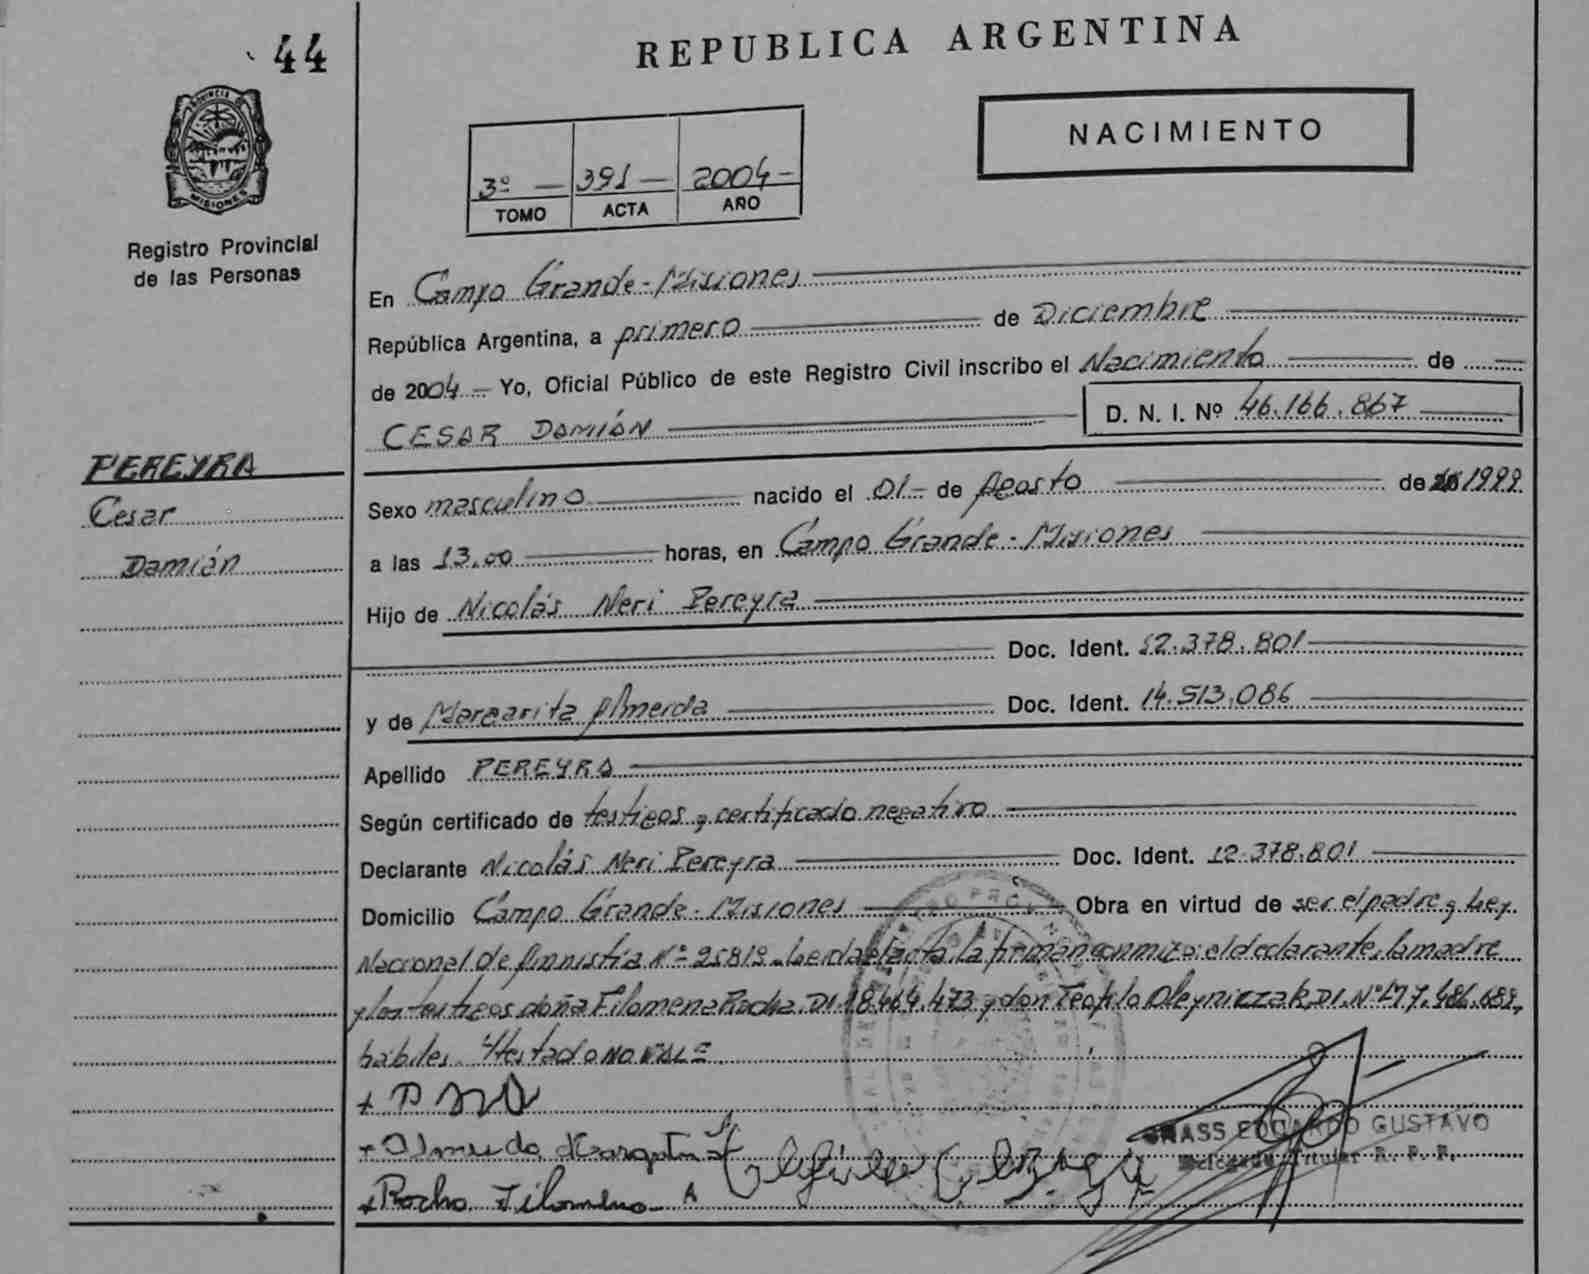 44
REPUBLICA ARGENTINA
NACIMIENTO
PROVINCIA DE MISIONES
Registro Provincial
de las Personas
3º — 391 — 2004 -
TOMO ACTA AÑO
En Campo Grande - Misiones
República Argentina, a primero de Diciembre
de 2004 - Yo, Oficial Público de este Registro Civil inscribo el Nacimiento de
CESAR DAMIÁN D. N. I. Nº 46.166.867
PEREYRA
Cesar
Damián
Sexo masculino nacido el 01 - de Agosto de 1999
a las 13.00 horas, en Campo Grande - Misiones
Hijo de Nicolás Neri Pereyra
Doc. Ident. 12.378.801
y de Margarita Almeida Doc. Ident. 14.513.086
Apellido PEREYRA
Según certificado de testigos y certificado negativo
Declarante Nicolás Neri Pereyra Doc. Ident. 12.378.801
Domicilio Campo Grande - Misiones Obra en virtud de ser el padre y Ley
Nacional de Amnistía Nº 25819. Leida el acta, la firman conmigo: el declarante, la madre
y los testigos doña Filomena Rocha DI. 18.464.473 y don Teofilo Oleynizzak, DI. Nº M 7.486.689,
habiles. Testado NO VALE
Rocha Filomena A
GRASS EDUARDO GUSTAVO
Delegado Titular R. P. P.